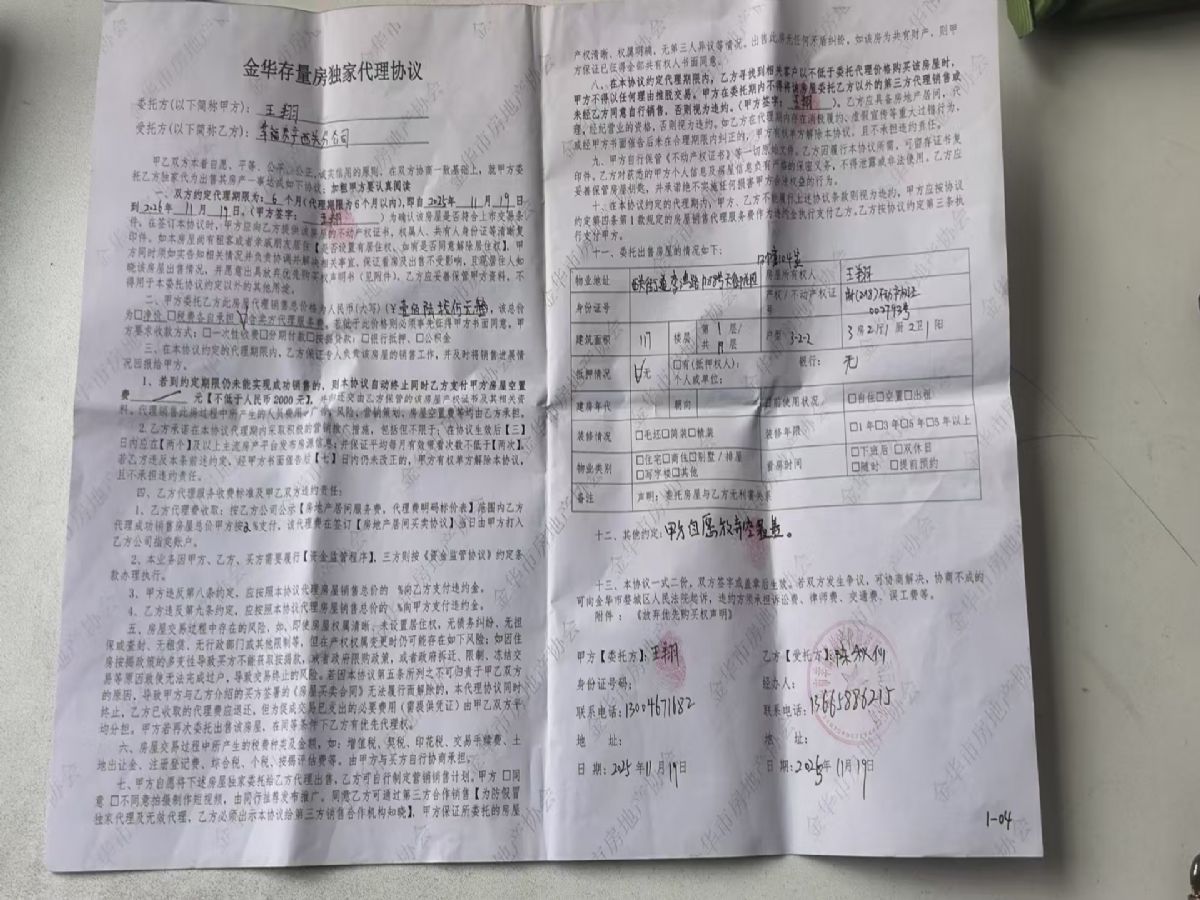 金华存量房独家代理协议
委托方(以下简称甲方)：王翔
受托方(以下简称乙方)：
甲乙双方本着自愿、平等、公平、公正、诚实信用的原则，在双方协商一致基础上，就甲方委
托乙方独家代为出售其房产一事达成如下协议，加粗甲方要认真阅读
一、双方约定代理期限为：6 个月(代理期限为6个月以内)，即自2025年 11 月 19 日
到 2026 年 11 月 19 日。(甲方签字：王翔)为确认该房屋是否符合上市交易条
件，在签订本协议时，甲方应向乙方提供该房屋的不动产权证书，权属人、共有人身份证等清晰复
印件。如本房屋尚有租客或者亲戚朋友居住【是否设置有居住权、如有是否同意解除居住权】，甲
方同时须如实告知相关情况并负责协调并解决相关事宜，保证看房及出售不受影响，且现居住人知
晓该房屋出售情况，并愿意出具放弃优先购买权声明书（见附件）。乙方应妥善保管甲方资料，不
得用于本委托协议约定以外的其他用途。
二、甲方委托乙方此房屋代理销售总价格为人民币(大写)(￥壹佰陆拾伍万元整)，该总价
为□净价 □税费各自承担 ☑含卖方代理服务费。若低于此价格则必须事先征得甲方书面同意。甲
方要求收款方式：□一次性收费□分期付款□按揭贷款；□银行抵押、□公积金
三、在本协议约定的代理期限内，乙方保证专人负责该房屋的销售工作，并及时将销售进展情
况回报给甲方。
1、若到约定期限仍未能实现成功销售的，则本协议自动终止同时乙方支付甲方房屋空置
费 元【不低于人民币2000元】，并归还交由乙方保管的该房屋产权证书及其相关资
料。代理销售此房过程中所产生的人员费用、广告、风险、营销策划、房屋空置费等均由乙方承担。
2.乙方承诺在本协议代理期内采取积极的营销推广措施，包括但不限于、在协议生效后【三】
日内应在【两个】及以上主流房产平台发布房源信息；并保证平均每月有效带看次数不低于【两次】。
若乙方违反本条前述约定，经甲方书面催告后【七】日内仍未改正的，甲方有权单方解除本协议，
且不承担违约责任。
四、乙方代理服务收费标准及甲乙双方违约责任：
1、乙方代理费收取：按乙方公司公示【房地产居间服务费，代理费明码标价表】范围内乙方
代理成功销售房屋总价甲方按2%支付。该代理费在签订【房地产居间买卖协议】当日由甲方打入
乙方公司指定账户。
2、本业务因甲方、乙方、买方需要履行【资金监管程序】，三方则按《资金监管协议》约定条
款办理执行。
3、甲方违反第八条约定，应按照本协议代理房屋销售总价的 %向乙方支付违约金。
4、乙方违反第九条约定，应按照本协议代理房屋销售总价的 %向甲方支付违约金。
五、房屋交易过程中存在的风险，如、即使房屋权属清晰、未设置居住权，无债务纠纷、无担
保或查封、无租赁、无行政部门或其他限制等，但在产权权属变更时仍可能存在如下风险：如因住
房按揭政策的多变性导致买方不能获取按揭款，或者政府限购政策，或者政府拆迁、限制、冻结交
易等原因致使无法完成过户，导致交易终止的风险。若因本协议第五条所列之不可归责于甲乙双方
的原因，导致甲方与乙方介绍的买方签署的《房屋买卖合同》无法履行而解除的，本代理协议同时
终止，乙方已收取的代理费应退还，但为促成交易已发出的必要费用（需提供凭证）由甲乙双方平
均分担。甲方若再次委托出售该房屋，在同等条件下乙方有优先代理权。
六、房屋交易过程中所产生的税费种类及金额，如：增值税、契税、印花税、交易手续费、土
地出让金、注册登记费、综合税、个税、按揭评估费等。由甲方与买方自行协商承担。
七、甲方自愿将下述房屋独家委托给乙方代理出售，乙方可自行制定营销销售计划。甲方 □同
意 □不同意拍摄制作短视频，由同行推荐发布推广。同意乙方可通过第三方合作销售【为防假冒
独家代理及无效代理，乙方必须出示本协议给第三方销售合作机构知晓】，甲方保证所委托的房屋
产权清晰、权属明确，无第三人异议等情况。出售此房无任何矛盾纠纷，如该房为共有财产，则甲
方保证已征得全部共有权人书面同意。
八、在本协议约定代理期限内，乙方寻找到相关客户以不低于委托代理价格购买该房屋时，
甲方不得以任何理由推脱交易。甲方在委托期内不得将该房屋委托乙方以外的第三方代理销售或
未经乙方同意自行销售，否则视为违约。（甲方签字：王翔）。乙方应具备房地产居间，代
理，经纪营业的资格，否则视为违约。如乙方在代理期内存在消极履约、虚假宣传等重大过错行为，
或经甲方书面催告后未在合理期限内纠正的，甲方有权单方解除本协议，且不承担违约责任。
九、甲方自行保管《不动产权证书》等一切原始文件。乙方因履行本协议所需，可留存证书复
印件。乙方对获悉的甲方个人信息及房屋信息负有严格的保密义务，不得泄露或非法使用。乙方应
妥善保管房屋钥匙，并承诺绝不实施任何损害甲方合法权益的行为。
十、在本协议约定的代理期内，甲方、乙方不能履行上述协议条款则视为违约，甲方应按协议
约定第四条第1款规定的房屋销售代理服务费作为违约金执行支付乙方。乙方按协议约定第三条执
行支付甲方。
十一、委托出售房屋的情况如下：
物业地址 房屋所有权人 王翔
身份证号 产权/不动产权证号 002793号
建筑面积 117 楼层 第 1 层/共 层 户型 3-2-2 3房2厅1厨2卫1阳
抵押情况 ☑无 □有(抵押权人)：个人或单位： 银行： 无
建房年代 朝向 目前使用状况 □自住□空置□出租
装修情况 □毛坯□简装□精装 装修年限 □1年□3年□5年□5年以上
物业类别 □住宅□商住□别墅/排屋 □写字楼□其他 看房时间 □下班后 □双休日 □随时 □提前预约
备注 声明：委托房屋与乙方无利害关系
十二、其他约定：甲方自愿放弃空置费。
十三、本协议一式二份，双方签字或盖章后生效。若双方发生争议，可协商解决，协商不成的
可向金华市婺城区人民法院起诉，违约方须承担诉讼费、律师费、交通费、误工费等。
附件：《放弃优先购买权声明》
甲方【委托方】：王翔
身份证号码：
联系电话：13004671682
地 址：
日 期：2025年11月19日
乙方【受托方】：
经办人：
联系电话：13665886215
地 址：
日 期：2025年11月19日
1-04